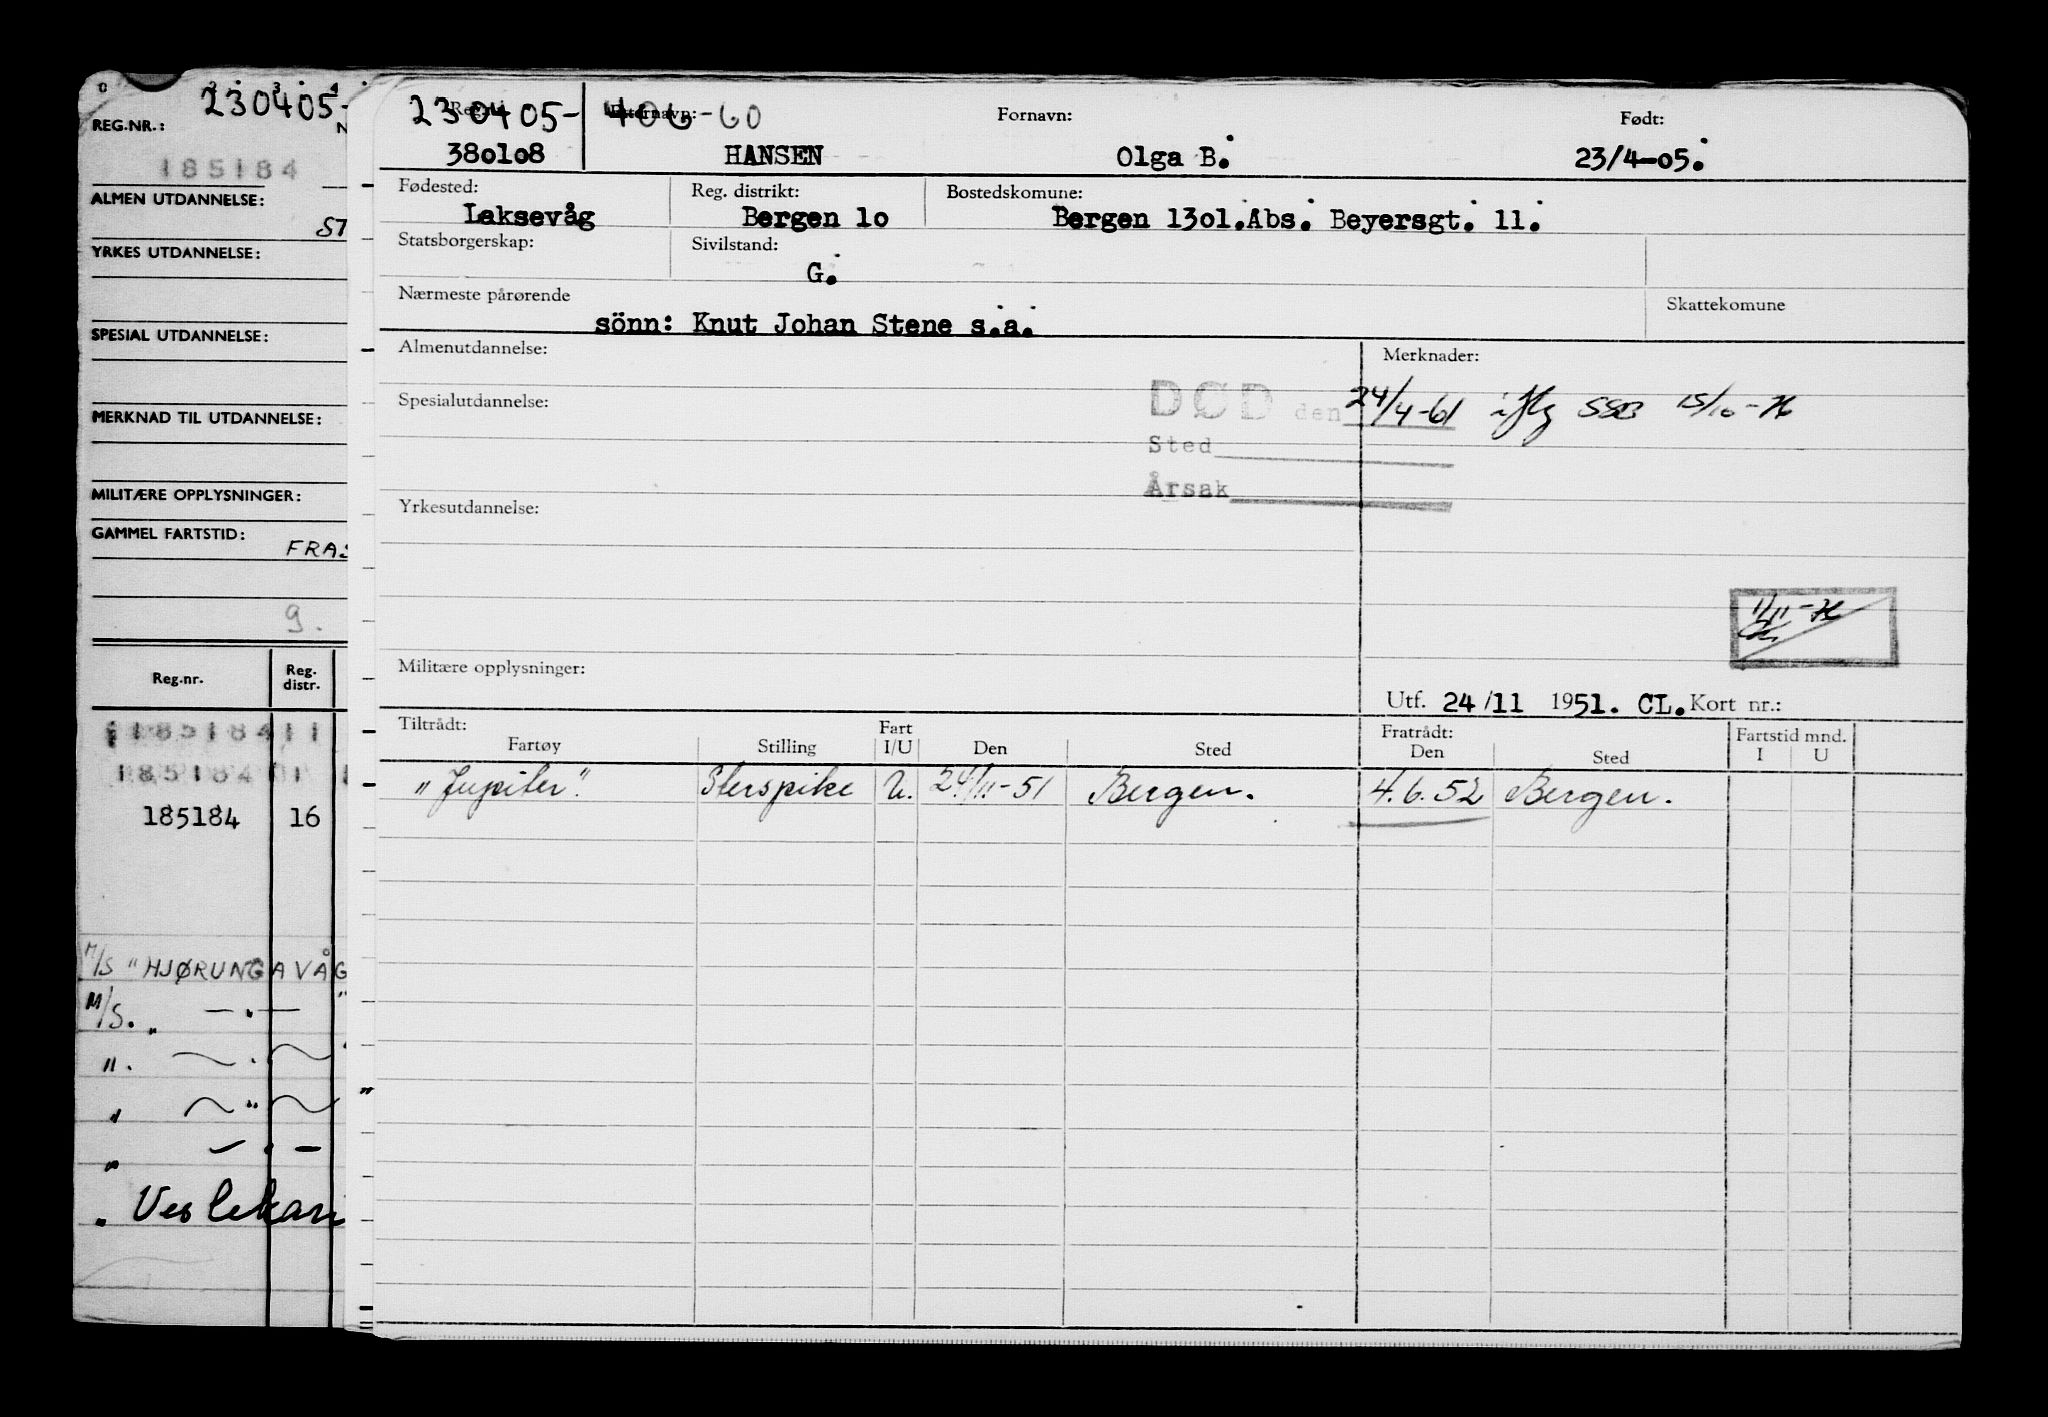 230405-
REG.NR.:
185184
ALMEN UTDANNELSE:
ST
YRKES UTDANNELSE:
SPESIAL UTDANNELSE:
MERKNAD TIL UTDANNELSE:
MILITÆRE OPPLYSNINGER:
GAMMEL FARTSTID:
FRAS
9.
Reg.nr. Reg. distr.
185184 11
185184 01
185184 16
M/S "HJØRUNGAVÅG
M/S. " — " — "
Veslekari
230405- 406-60 Fornavn: Født:
380108 HANSEN Olga B. 23/4-05.
Fødested: Reg. distrikt: Bostedskomune:
Laksevåg Bergen 10 Bergen 1301.Abs. Beyersgt. 11.
Statsborgerskap: Sivilstand:
G.
Nærmeste pårørende Skattekomune
sönn: Knut Johan Stene s.a.
Almenutdannelse: Merknader:
Spesialutdannelse: DØD den 24/4-61 iflg SSB 15/10-
Sted
Årsak
Yrkesutdannelse:
1/11-
Militære opplysninger:
Utf. 24/11 1951. CL. Kort nr.:
Tiltrådt: Fart Fratrådt: Fartstid mnd.
Fartøy Stilling I/U Den Sted Den Sted I U
"Jupiter". Sterspike U. 24/11-51 Bergen. 4.6.52 Bergen.